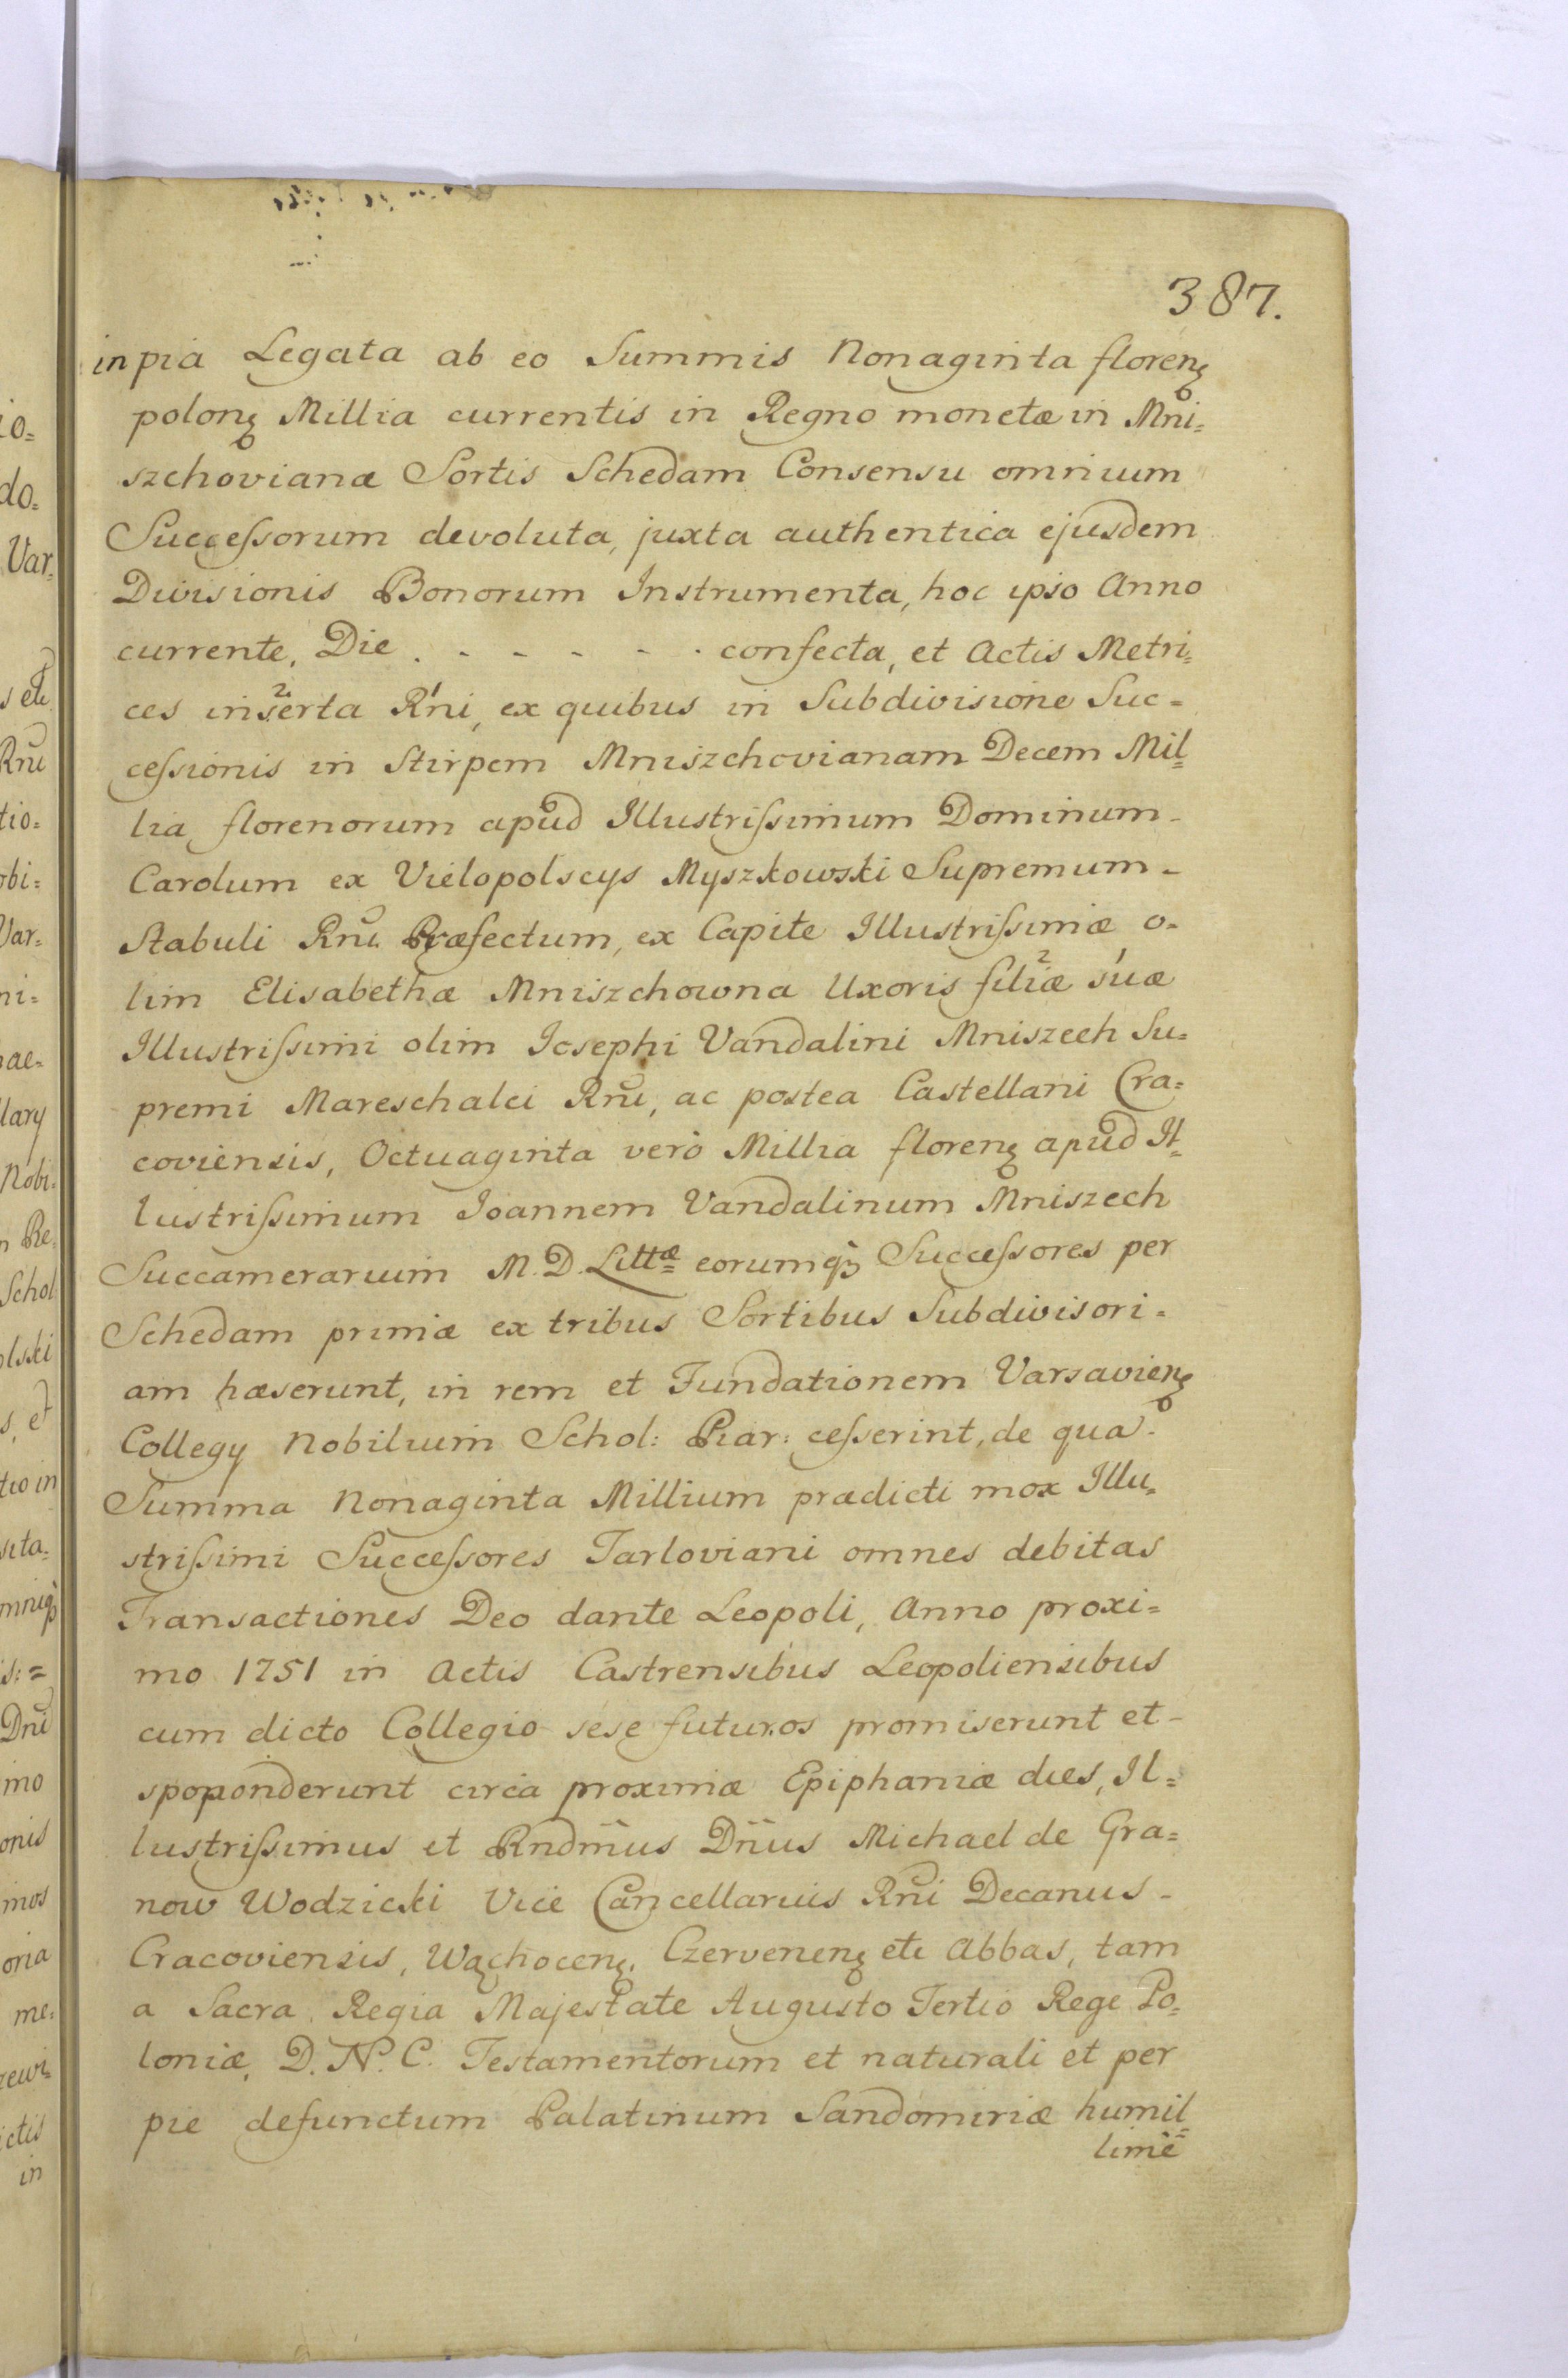 387.
in pia Legata ab eo Summis Nonaginta floreng
polong Millia currentis in Regno monetæ in Mni=
szchovianæ Sortis Schedam Consensu omnium
Succeſsorum devoluta, juxta authentica ejusdem
Divisionis Bonorum Instrumenta, hoc ipso Anno
currente, Die . - - - - - . confecta, et Actis Metri=
ces inserta Rni, ex quibus in Subdivisione Suc=
ceſsionis in Stirpem Mniszchovianam Decem Mil=
lia florenorum apud Illustriſsimum Dominum -
Carolum ex Vielopolscys Myszkowski Supremum -
Stabuli Rni Præfectum, ex Capite Illustriſsimæ o=
lim Elisabethæ Mniszchowna Uxoris filiæ suæ
Illustriſsimi olim Josephi Vandalini Mniszech Su=
premi Mareschalci Rni, ac postea Castellani Cra=
coviensis, Octuaginta verò Millia floreng apud Il=
lustriſsimum Joannem Vandalinum Mniszech
Succamerarium M. D. Littæ eorumq3 Succeſsores per
Schedam primæ ex tribus Sortibus Subdivisori=
am hæserunt, in rem et Fundationem Varsavieng
Collegy Nobilium Schol: Piar: ceſserint, de qua -
Summa Nonaginta Millium prædicti mox Illu=
striſsimi Succeſsores Tarloviani omnes debitas
Transactiones Deo dante Leopoli, Anno proxi=
mo 1751 in Actis Castrensibus Leopoliensibus
cum dicto Collegio sese futuros promiserunt et -
spoponderunt circa proximæ Epiphaniæ dies, Il=
lustriſsimus et Rndm̃us Dñus Michael de Gra=
now Wodzicki Vice Cancellarius Rni Decanus -
Cracoviensis, Wąchoceng. Czerveneng etc Abbas, tam
a Sacra Regia Majestate Augusto Tertio Rege Po=
loniæ, D. N. C. Testamentorum et naturali et per
pie defunctum Palatinum Sandomiriæ humil=
limè